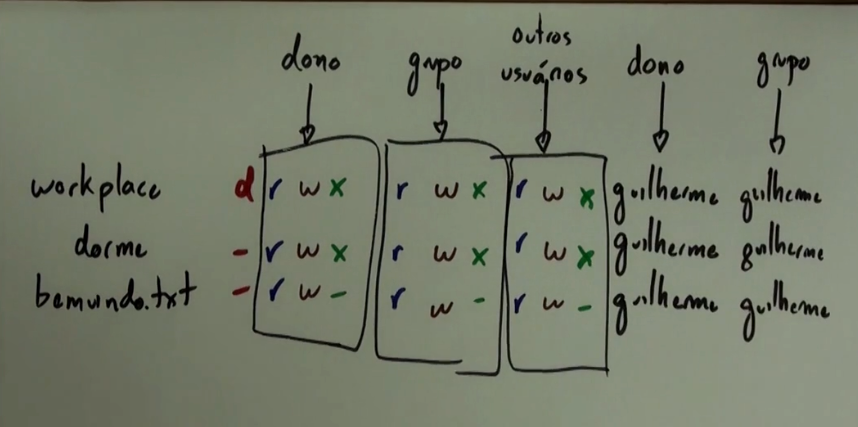 dono grupo outros usuários dono grupo
workplace d r w x r w x r w x guilherme guilherme
dorme - r w x r w x r w x guilherme guilherme
bemundo.txt - r w - r w - r w - guilherme guilherme